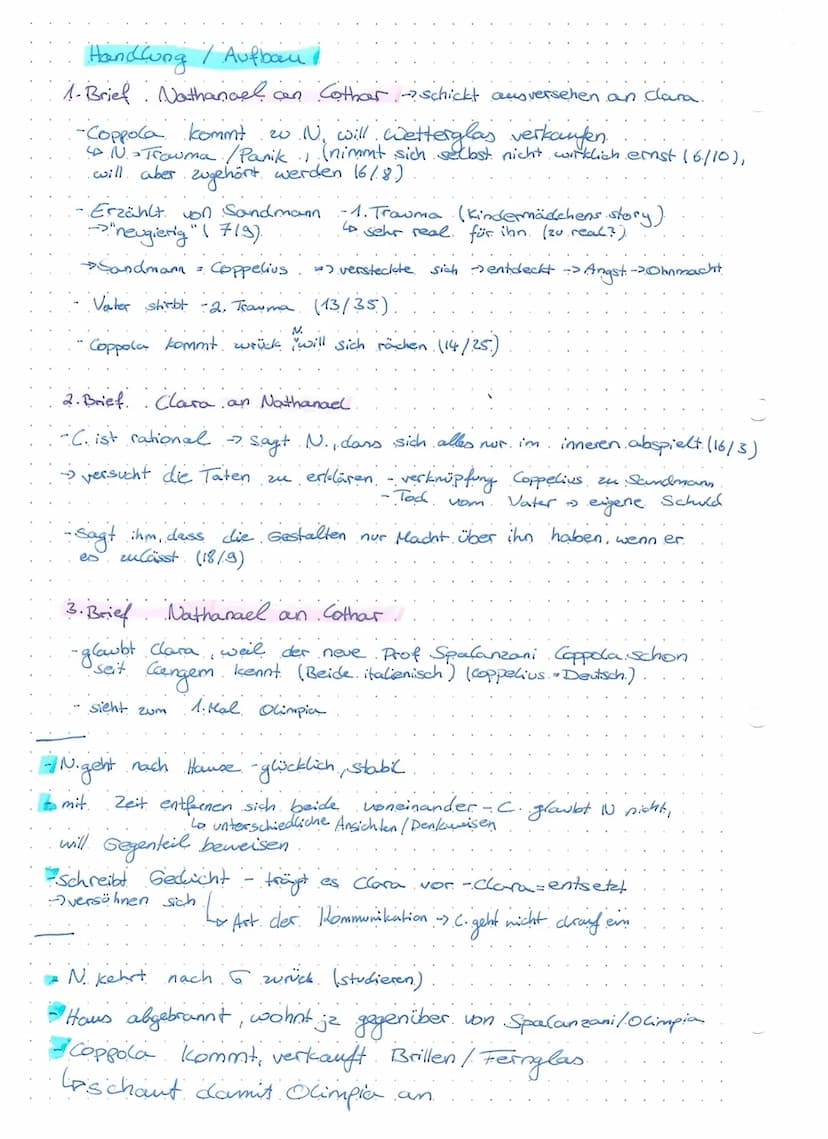 Handlung / Aufbau
1. Brief. Nathanael an Lothar → schickt ausversehen an Clara
- Coppola kommt zu N, will Wetterglas verkaufen
↳ N → Trauma / Panik, (nimmt sich selbst nicht wirklich ernst (6/10),
will aber zugehört werden (6/8)
- Erzählt von Sandmann - 1. Trauma (Kindermädchens story)
→ "neugierig" (7/9) ↳ sehr real für ihn (zu real?)
→ Sandmann = Coppelius => versteckte sich → entdeckt → Angst → Ohnmacht
- Vater stirbt - 2. Trauma (13/35)
- Coppola kommt zurück, N. will sich rächen (14/25)
2. Brief. Clara an Nathanael
- C. ist rational → sagt N., dass sich alles nur im inneren abspielt (16/3)
→ versucht die Taten zu erklären - verknüpfung Coppelius zu Sandmann
- Tod vom Vater → eigene Schuld
- Sagt ihm, dass die Gestalten nur Macht über ihn haben, wenn er
es zulässt (18/9)
3. Brief. Nathanael an Lothar
- glaubt Clara, weil der neue Prof Spalanzani Coppola schon
seit langem kennt (Beide italienisch) (Coppelius = Deutsch)
- sieht zum 1. Mal Olimpia
- N. geht nach Hause - glücklich, stabil
↳ mit Zeit entfernen sich beide voneinander - C. glaubt N nicht,
↳ unterschiedliche Ansichten / Denkweisen
will Gegenteil beweisen
- schreibt Gedicht - trägt es Clara vor - Clara = entsetzt
→ versöhnen sich
↳ Art der Kommunikation → C. geht nicht drauf ein
- N. kehrt nach G zurück (studieren)
- Haus abgebrannt, wohnt jz gegenüber von Spalanzani / Olimpia
- Coppola kommt, verkauft Brillen / Fernglas
↳ schaut damit Olimpia an